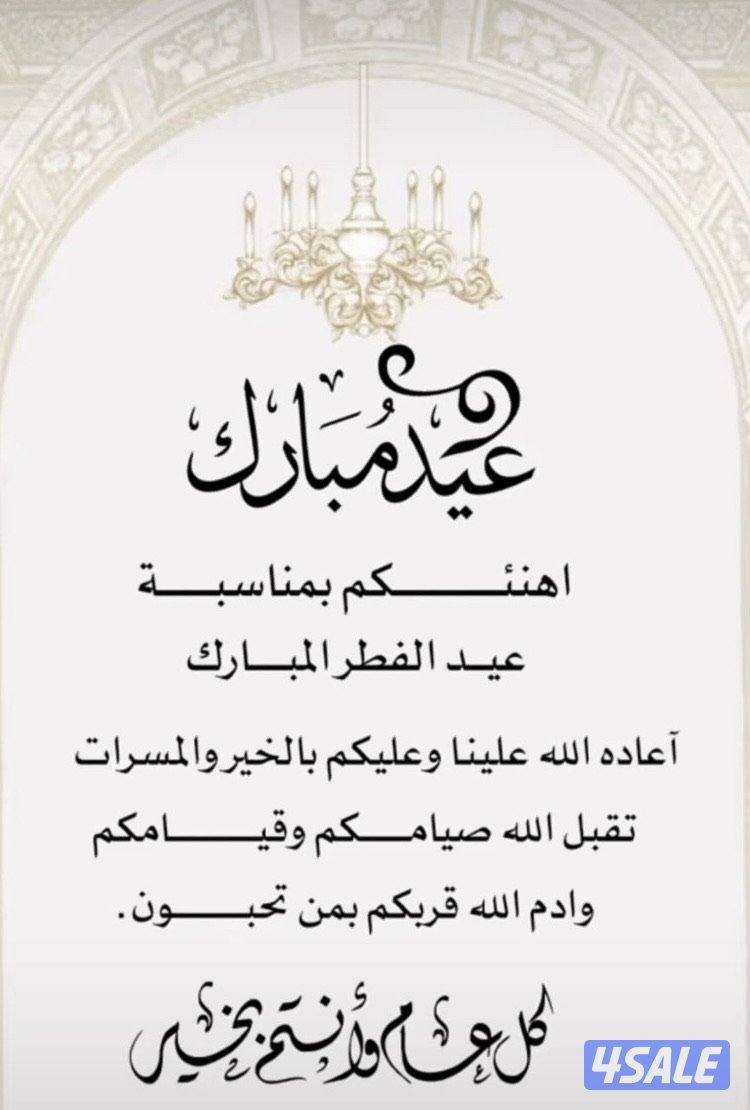 عيد مُبَارك
اهنئكم بمناسبة
عيد الفطر المبارك
آعاده الله علينا وعليكم بالخير والمسرات
تقبل الله صيامكم وقيامكم
وادم الله قربكم بمن تحبون.
كل عام وأنتم بخير
4SALE